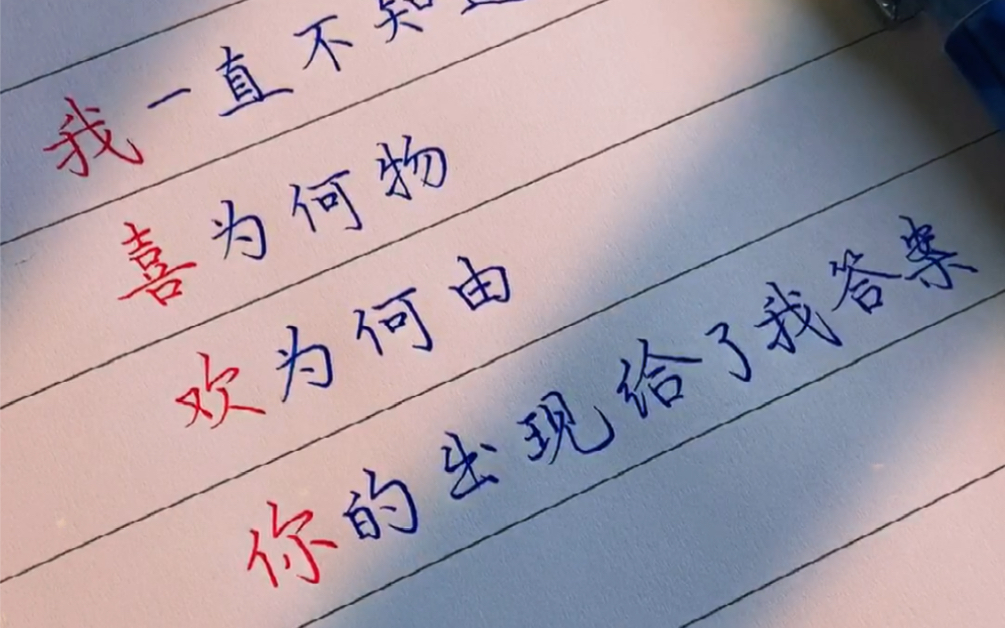 我一直不知道
喜为何物
欢为何由
你的出现给了我答案